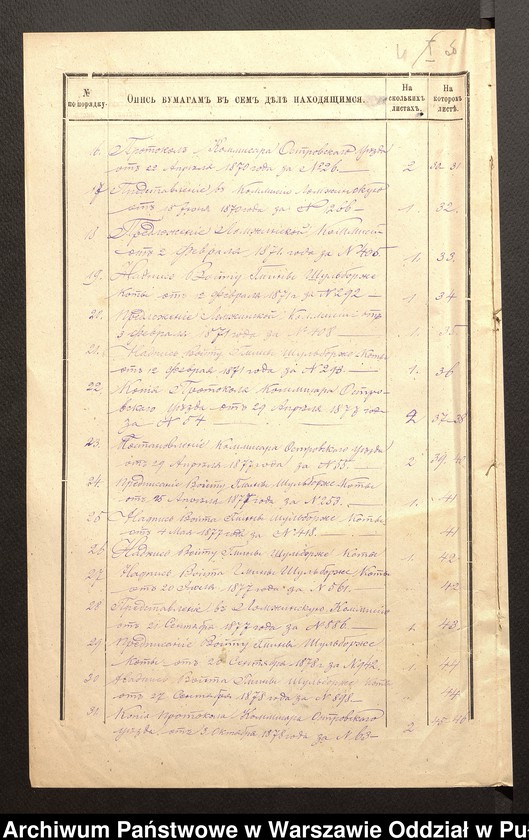 № по порядку.
Опись бумагамъ въ семъ дѣлѣ находящимся.
На сколькихъ листахъ.
На которомъ листѣ.
16. Протоколъ Коммисара Островскаго уѣзда
отъ 22 Апрѣля 1870 года за №26. — 2
17 Представленіе въ Коммисію Ломжинскую
отъ 15 Іюня 1870 года за № — 1. 32.
18. Предложеніе Ломжинской Коммисіи
отъ 2 Февраля 1871 года за №405. 1. 33.
19. Надпись Войту Гмины Шульборже
Коты отъ 12 Февраля 1871 г за №292 — 1 34
20. Предложеніе Ломжинской Коммисіи отъ
3 Февраля 1871 года за №408 — 1. 35
21. Надпись Войту Гмины Шульборже Коты
отъ 12 Февраля 1871 года за №293. — 1. 36
22. Протокола Коммисара Остро-
вскаго уѣзда отъ 29 Апрѣля 1877 года
за №54 — 2 37-38
23. Постановленіе Коммисара Островскаго уѣзда
отъ 29 Апрѣля 1877 года за №55. — 2 39,40
24. Предписаніе Войту Гмины Шульборже Коты
отъ 25 Апрѣля 1877 года за №253. — 1. 41
25 Надпись Войта Гмины Шульборже Коты
отъ 4 Мая 1877 года за №418. — 41
26 Надпись Войту Гмины Шульборже Коты 1. 42
27 Надпись Войта Гмины Шульборже Коты
отъ 20 1877 года за №561. 42
28 Представленіе въ Ломжинскую Коммисію
отъ 21 Сентября 1877 года за №886. 1. 43
29. Предписаніе Войту Гмины Шульборже
Коты отъ 20 Сентября 1878 г за №942. 1. 44
30 Войта Гмины Шульборже Коты
отъ 27 Сентября 1878 года за №898. — 44
31. Копія протокола Коммисара Островскаго
уѣзда отъ 3 Октября 1878 года за №63- 2 45-46
Archiwum Państwowe w Warszawie Oddział w Pu